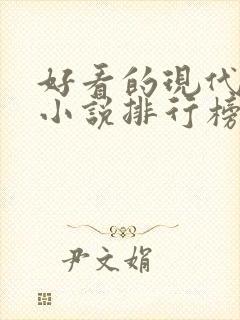 好看的现代
小说排行榜
尹文娟